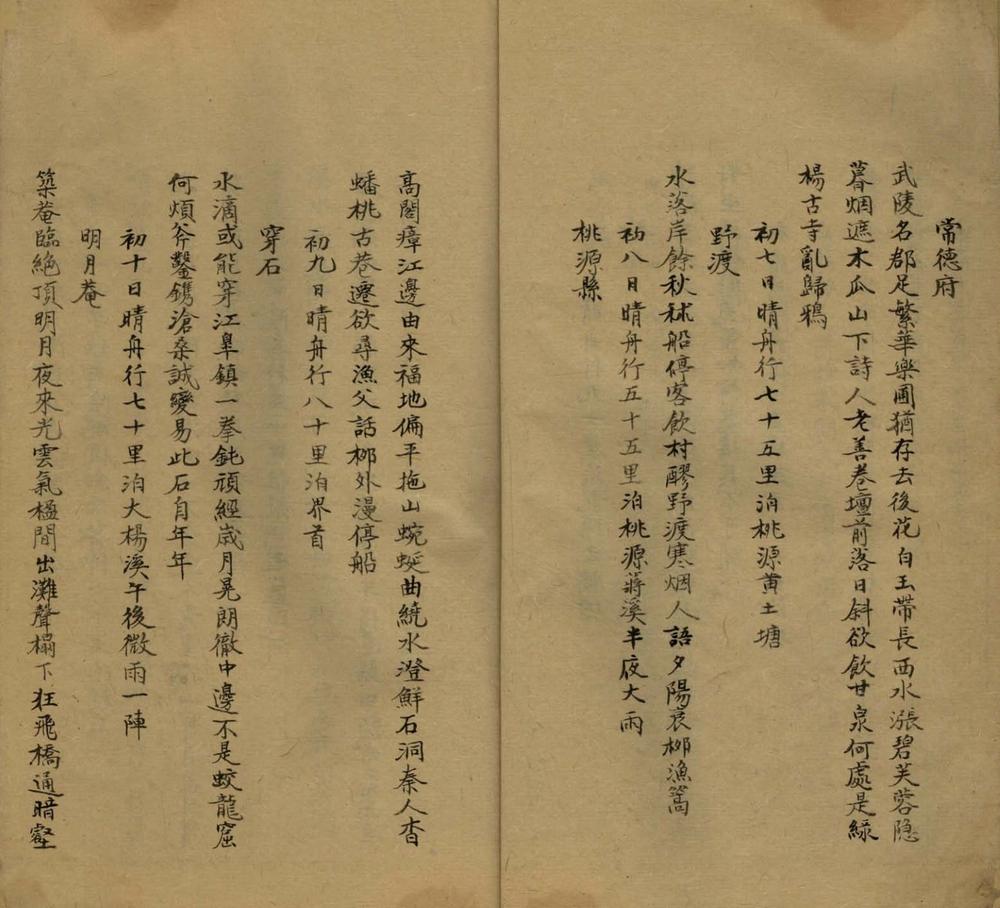 常德府
武陵名郡足繁華樂圃猶存去後花白玉帶長西水漲碧芙蓉隐
暮烟遮木瓜山下詩人老善卷壇前落日斜欲飲甘泉何處是綠
楊古寺亂歸鴉
初七日晴舟行七十五里泊桃源黄土塘
野渡
水落岸餘秋秫船停客飲村醪野渡寒烟人語夕陽衰柳漁篙
初八日晴舟行五十五里泊桃源蔣溪半夜大雨
桃源縣
高閣瘴江邊由來福地偏平拖山蜿蜒曲繞水澄鮮石洞秦人杳
蟠桃古巷遷欲尋漁父話柳外漫停船
初九日晴舟行八十里泊界首
穿石
水滴或能穿江皐鎮一拳鈍頑經歲月晃朗徹中邊不是蛟龍窟
何煩斧鑿鐫滄桑誠變易此石自年年
初十日晴舟行七十里泊大楊溪午後微雨一陣
明月菴
築菴臨絶頂明月夜來光雲氣楹間出灘聲榻下狂飛橋通暗壑